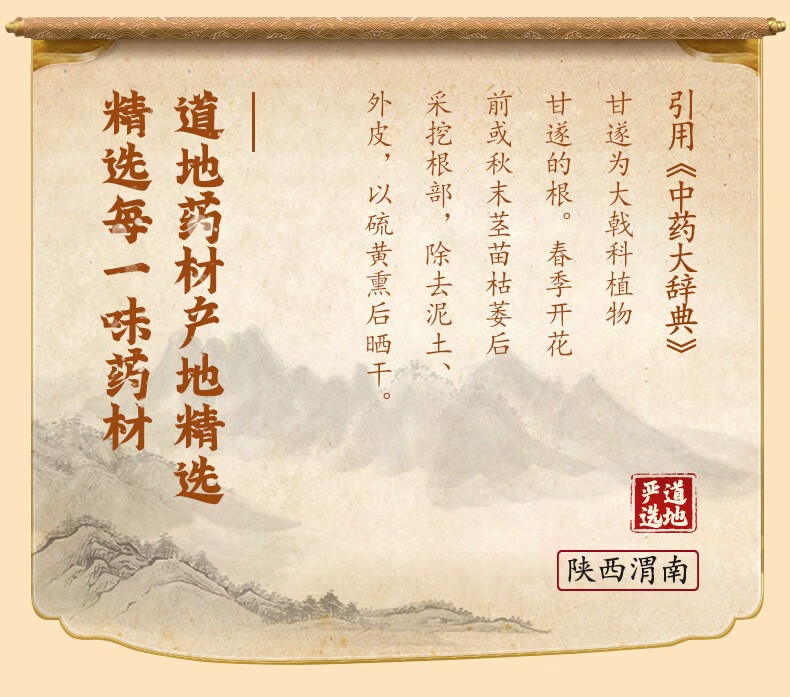 引用《中药大辞典》
甘遂为大戟科植物
甘遂的根。春季开花
前或秋末茎苗枯萎后
采挖根部，除去泥土、
外皮，以硫黄熏后晒干。
道地药材产地精选
精选每一味药材
道地
严选
陕西渭南